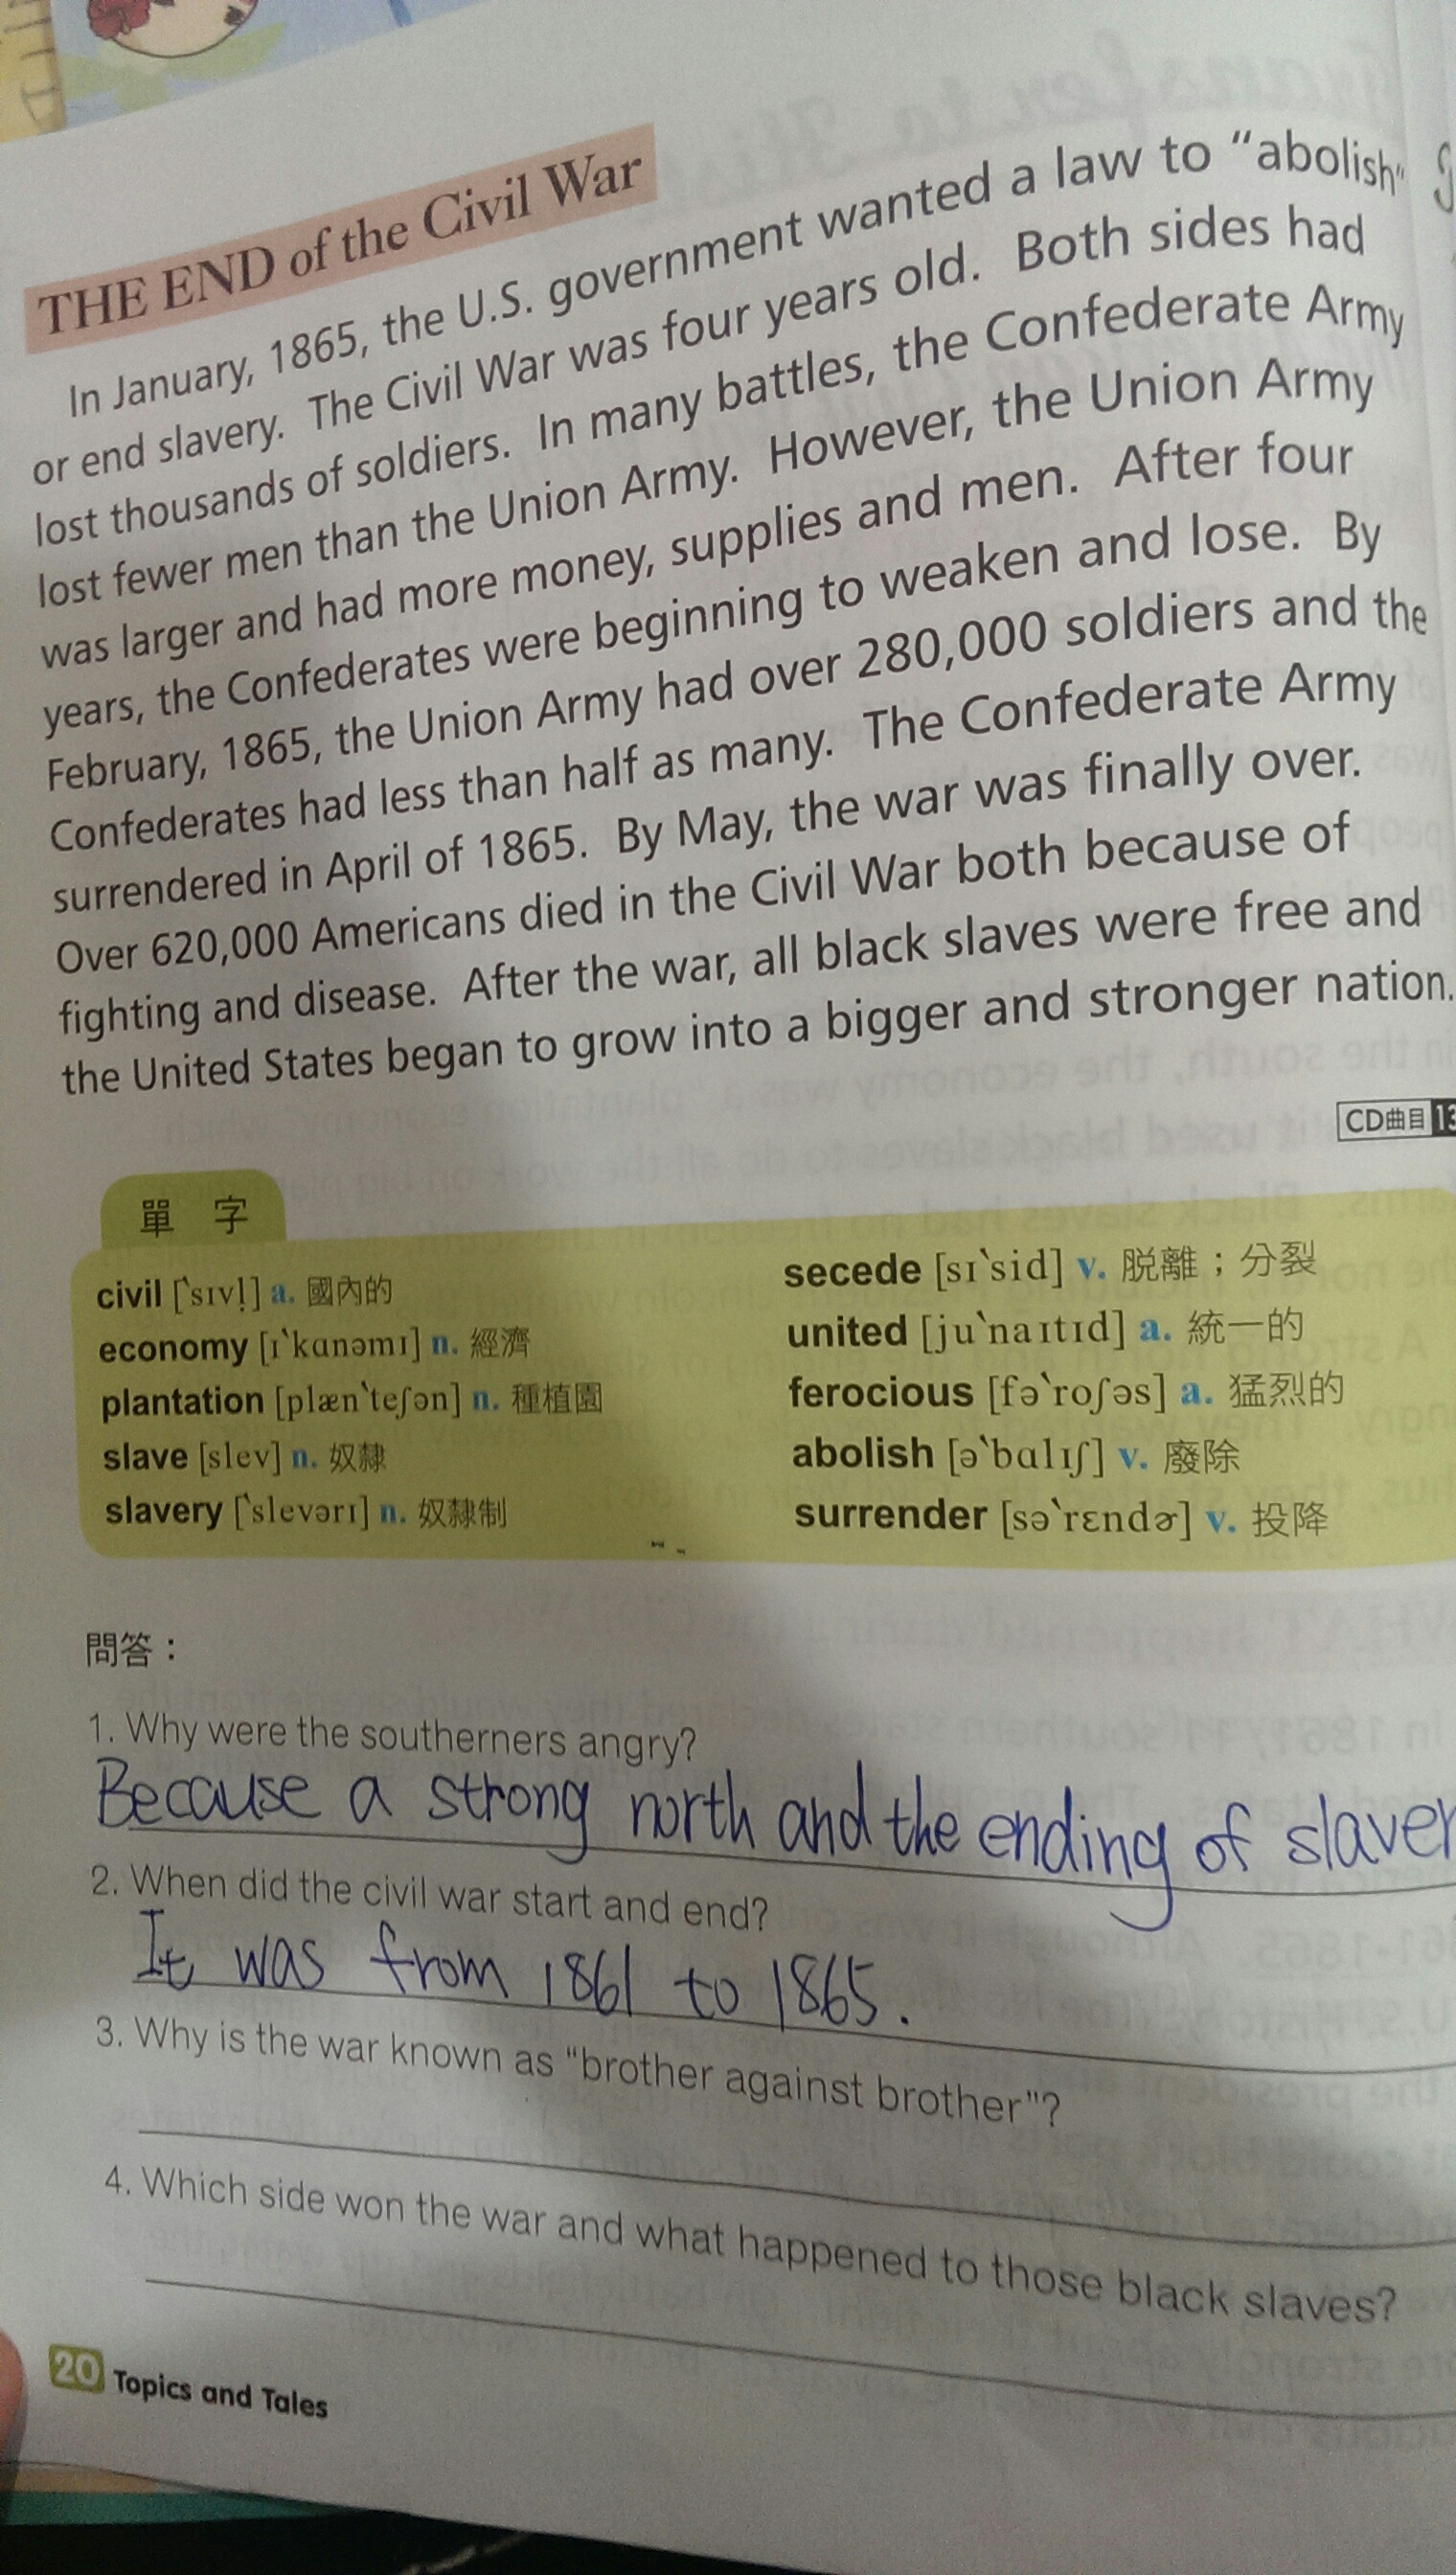 THE END of the Civil War
In January, 1865, the U.S. government wanted a law to “abolish”
or end slavery. The Civil War was four years old. Both sides had
lost thousands of soldiers. In many battles, the Confederate Army
lost fewer men than the Union Army. However, the Union Army
was larger and had more money, supplies and men. After four
years, the Confederates were beginning to weaken and lose. By
February, 1865, the Union Army had over 280,000 soldiers and the
Confederates had less than half as many. The Confederate Army
surrendered in April of 1865. By May, the war was finally over.
Over 620,000 Americans died in the Civil War both because of
fighting and disease. After the war, all black slaves were free and
the United States began to grow into a bigger and stronger nation.
CD曲目 13
單字
civil [ˋsɪvl̩] a. 國內的
economy [ɪˋkɑnəmɪ] n. 經濟
plantation [plænˋteʃən] n. 種植園
slave [slev] n. 奴隸
slavery [ˋslevərɪ] n. 奴隸制
secede [sɪˋsid] v. 脱離；分裂
united [juˋnaɪtɪd] a. 統一的
ferocious [fəˋroʃəs] a. 猛烈的
abolish [əˋbɑlɪʃ] v. 廢除
surrender [səˋrɛndɚ] v. 投降
問答：
1. Why were the southerners angry?
Because a strong north and the ending of slaver
2. When did the civil war start and end?
It was from 1861 to 1865.
3. Why is the war known as “brother against brother”?
4. Which side won the war and what happened to those black slaves?
20 Topics and Tales